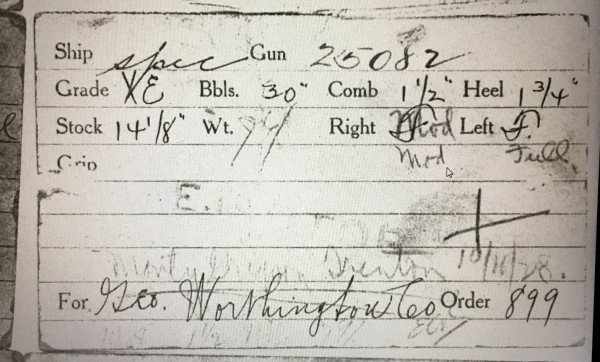 Ship spec Gun 25082
Grade XE Bbls. 30" Comb 1 1/2" Heel 1 3/4"
Stock 14 1/8" Wt. Right Mod Left F.
Grip Mod Full
E.
Trenton 10/11/28.
For Geo. Worthington Co Order 899